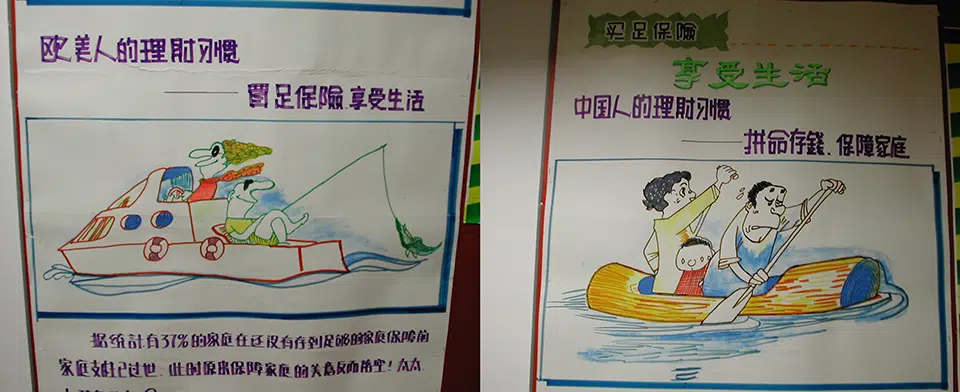 欧美人的理財习慣
—— 買足保險.享受生活
据統計有37%的家庭在还没有存到足够的家庭保障前
家庭支柱已过世.此时原來保障家庭的美意反而落空!
买足保險
享受生活
中国人的理財习慣
——拼命存錢.保障家庭